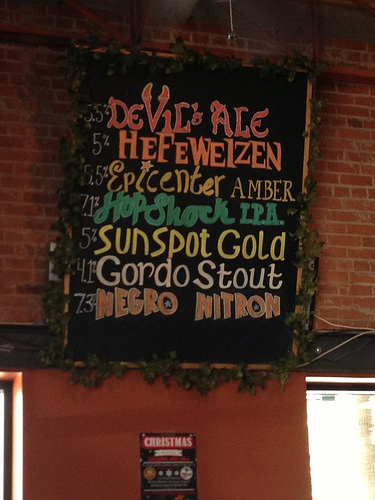 5.5% DEVIL'S ALE
5% HEFEWEIZEN
5.5% EpicenTer AMBER
7.1% HopShock I.P.A.
5% SUNSPOT GOLD
4.1% Gordo Stout
7.3% NEGRO NITRON
CHRISTMAS